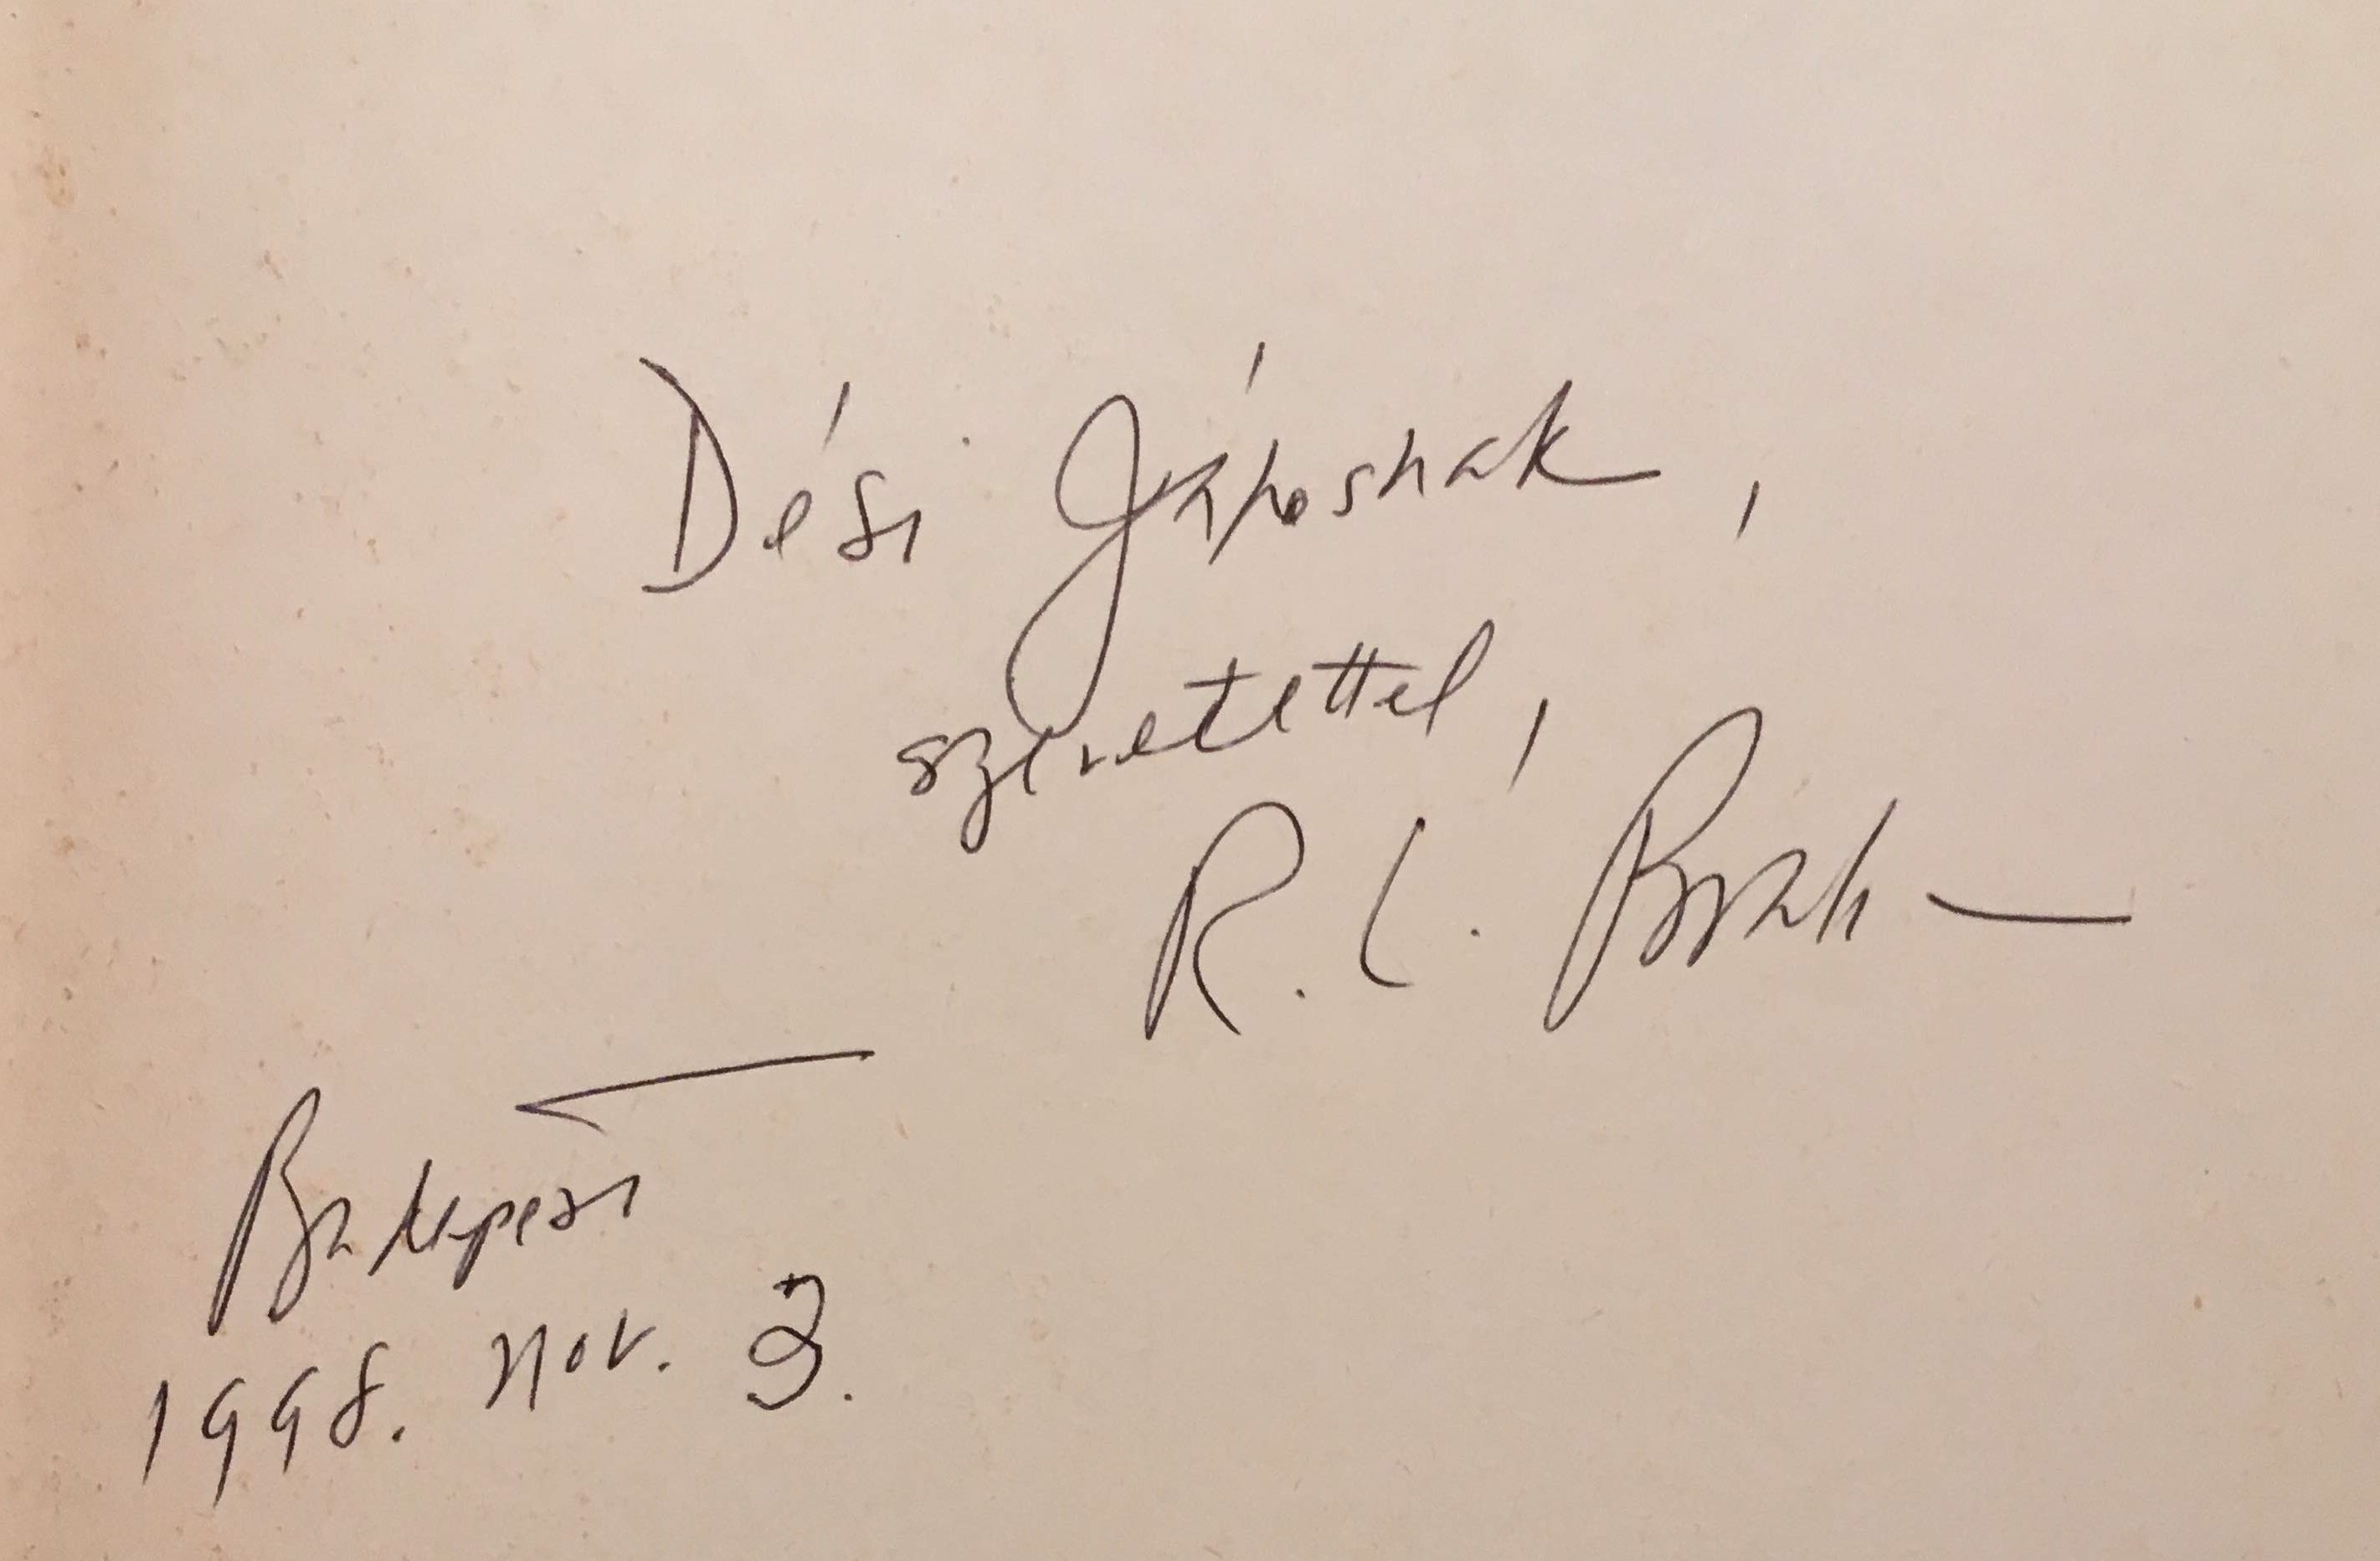 Dési Jánosnak,
szeretettel,
R. L. Braham
Budapest
1998. Nov. 3.